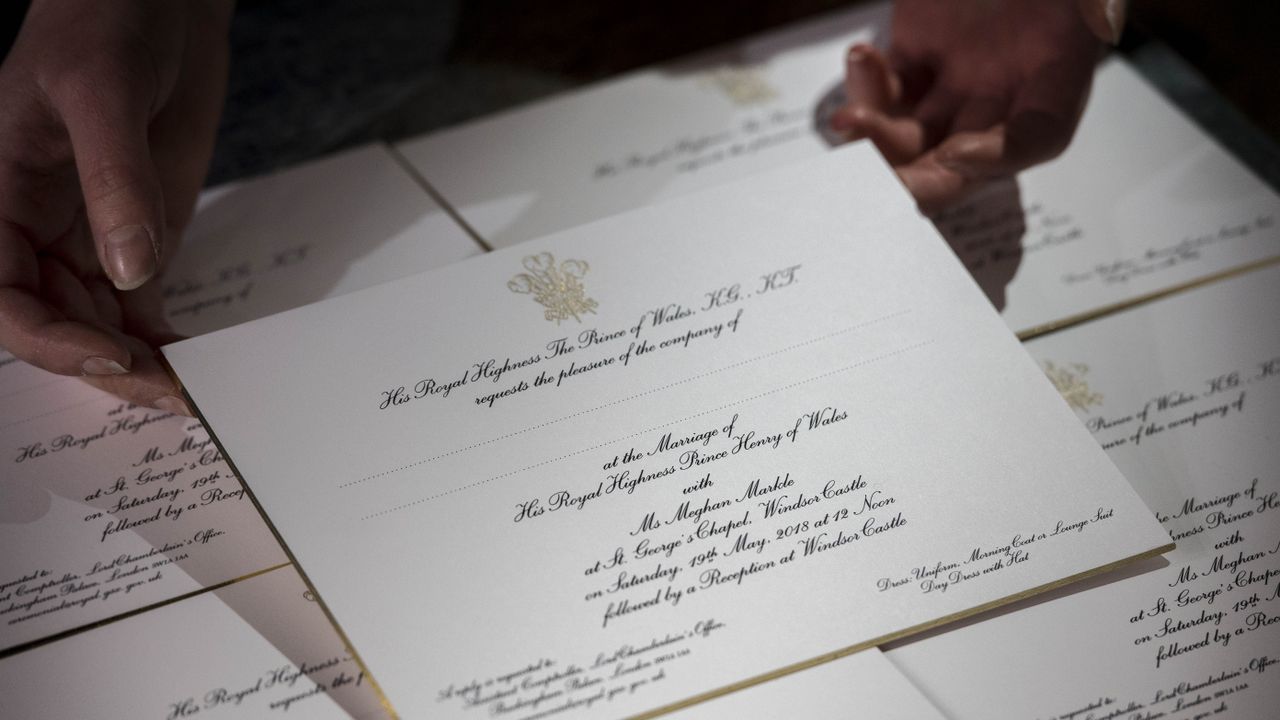 His Royal Highness The Prince of Wales, K.G., K.T.
requests the pleasure of the company of
at the Marriage of
His Royal Highness Prince Henry of Wales
with
Ms Meghan Markle
at St. George's Chapel, Windsor Castle
on Saturday, 19th May, 2018 at 12 Noon
followed by a Reception at Windsor Castle
Dress: Uniform, Morning Coat or Lounge Suit
Day Dress with Hat
A reply is requested to:
Comptroller, Lord Chamberlain's Office,
Buckingham Palace, London SW1A 1AA
Wales, K.G., K.T.
company of
His Royal Highness
requests the pleasure
at the
His Royal Highness
Ms Megh
at St. George's Chap
on Saturday, 19th M
followed by a Recep
requested to:
Comptroller, Lord Chamberlain's Office,
Buckingham Palace, London SW1A 1AA
Prince of Wales, K.G., K
of the company of
the Marriage of
Highness Prince He
with
Ms Meghan
at St. George's Chape
on Saturday, 19th
followed by a Re
Lord Chamberlain's Office,
His Royal Highness
requests the p